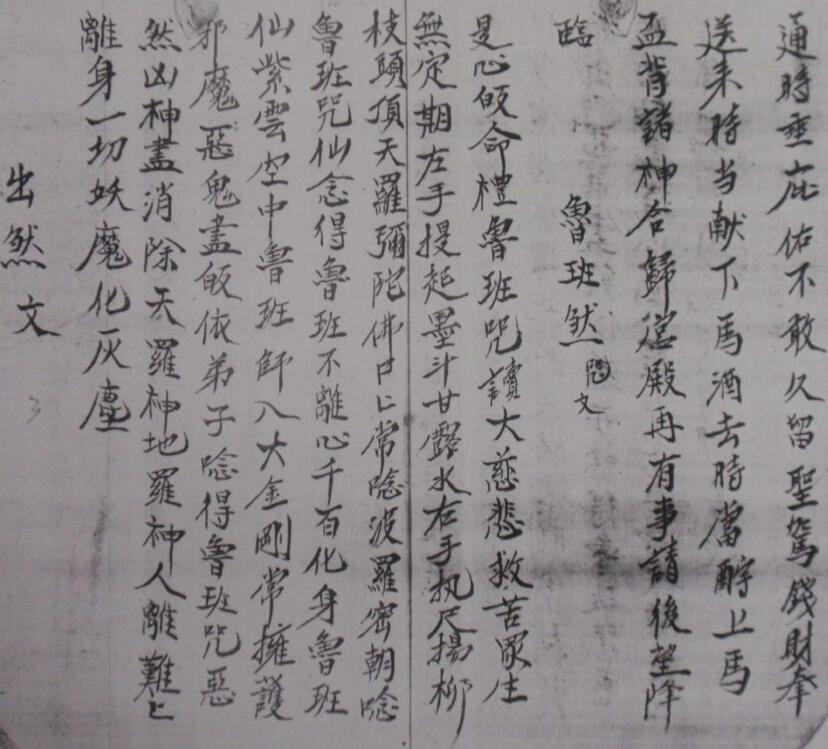 通時垂庇佑不敢久留聖駕錢財奉
送来時当献下馬酒去時當酧上馬
盃背諸神合歸宫殿再有事請後望降
臨
魯班然 閗文
是心皈命禮魯班咒讀大慈悲救苦眾生
無定期左手提起墨斗甘露水右手执尺揚柳
枝頭頂天羅彌陀佛口上常唸波羅密朝唸
魯班咒仙念得魯班不離心千百化身魯班
仙紫雲空中魯班師八大金剛常擁護
邪魔惡鬼盡皈依弟子唸得魯班咒惡
然凶神盡消除天羅神地羅神人離難上
離身一切妖魔化灰塵
出然文